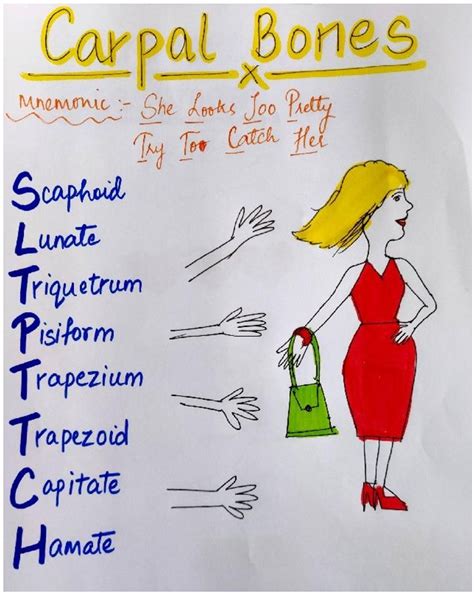 Carpal Bones
x
Mnemonic :- She Looks Too Pretty
Try Too Catch Her
Scaphoid
Lunate
Triquetrum
Pisiform
Trapezium
Trapezoid
Capitate
Hamate